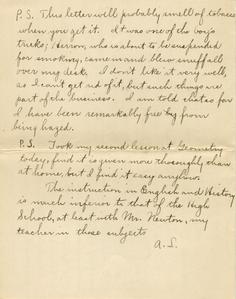 P.S. This letter will probably smell of tobacco
when you get it. It was one of the boy's
tricks; Herron, who is about to be suspended
for smoking, came in and blew snuff all
over my desk. I don't like it very well,
as I can't get rid of it, but such things are
part of the business. I am told that so far
I have been remarkably free from
being hazed.
P.S. Took my second lesson at Geometry
today, find it is even more thoroughly than
at home, but I find it easy anyhow.
The instruction in English and History
is much inferior to that of the High
School, at least with Mr. Newton, my
teacher in those subjects
A. S.